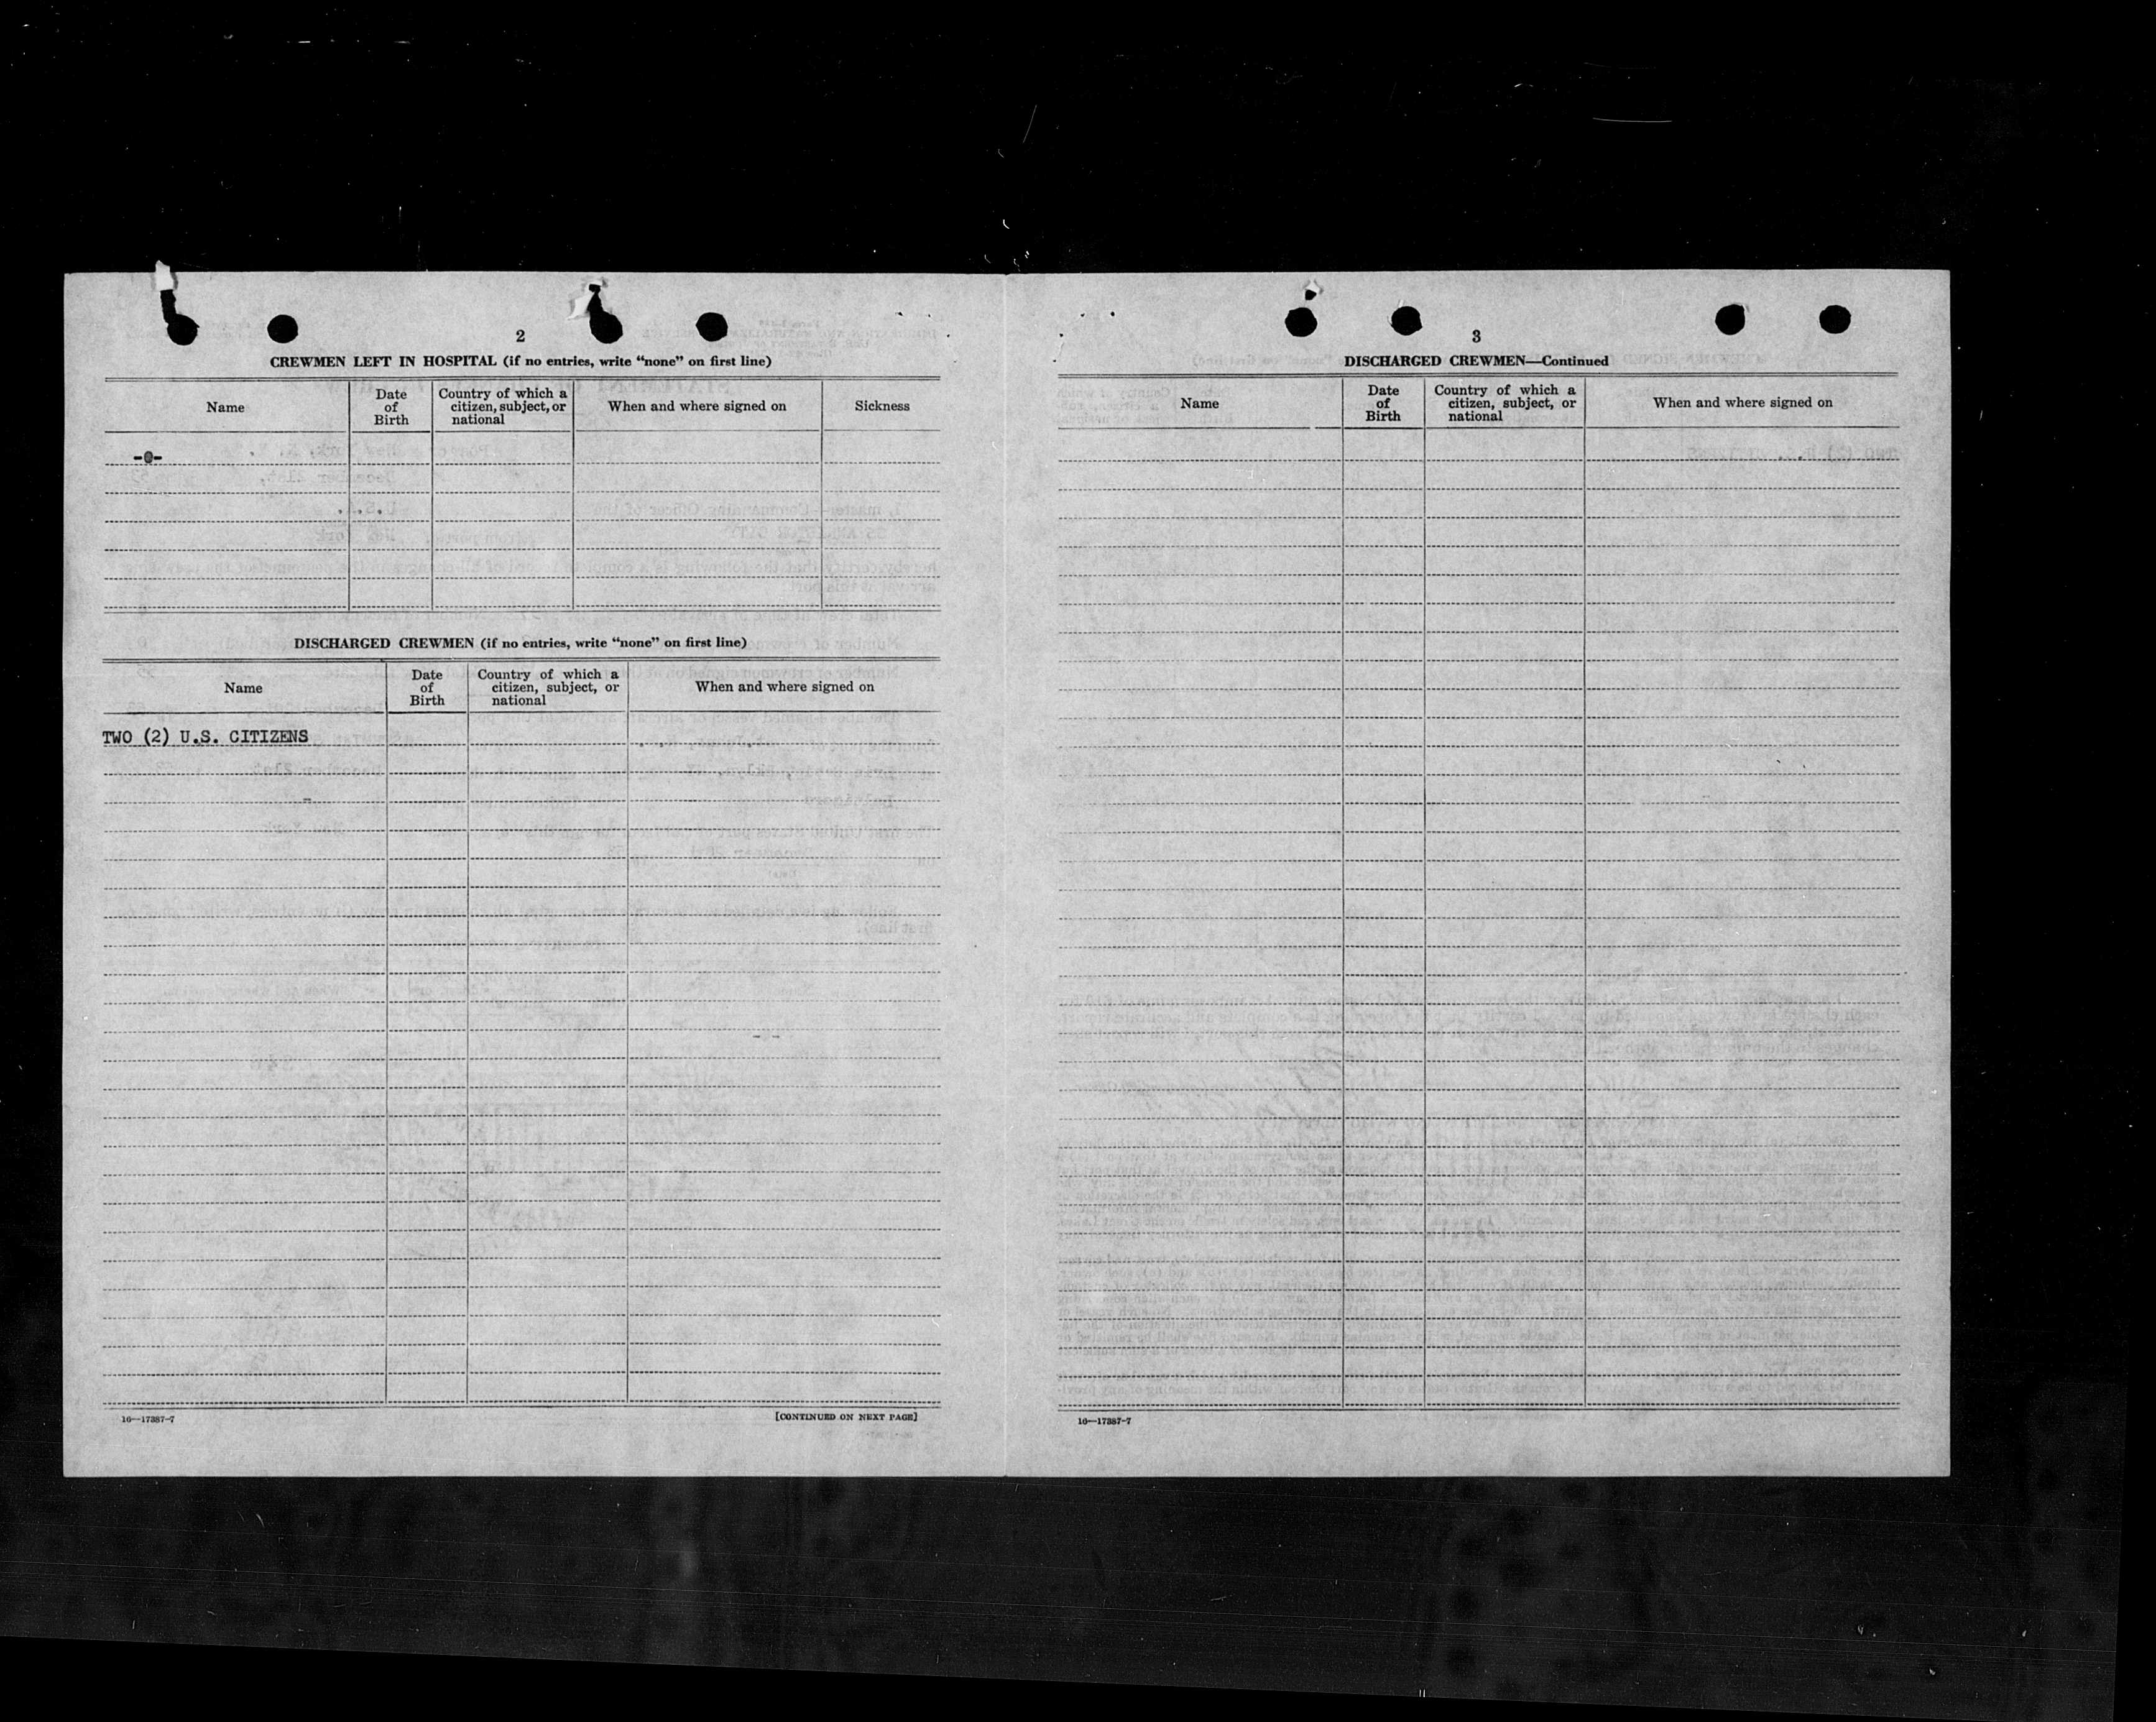 2
CREWMEN LEFT IN HOSPITAL (if no entries, write “none” on first line)
Name
Date of Birth
Country of which a citizen, subject, or national
When and where signed on
Sickness
-0-
DISCHARGED CREWMEN (if no entries, write “none” on first line)
Name
Date of Birth
Country of which a citizen, subject, or national
When and where signed on
TWO (2) U.S. CITIZENS
16—17387-7
[CONTINUED ON NEXT PAGE]
3
DISCHARGED CREWMEN—Continued
Name
Date of Birth
Country of which a citizen, subject, or national
When and where signed on
16—17387-7